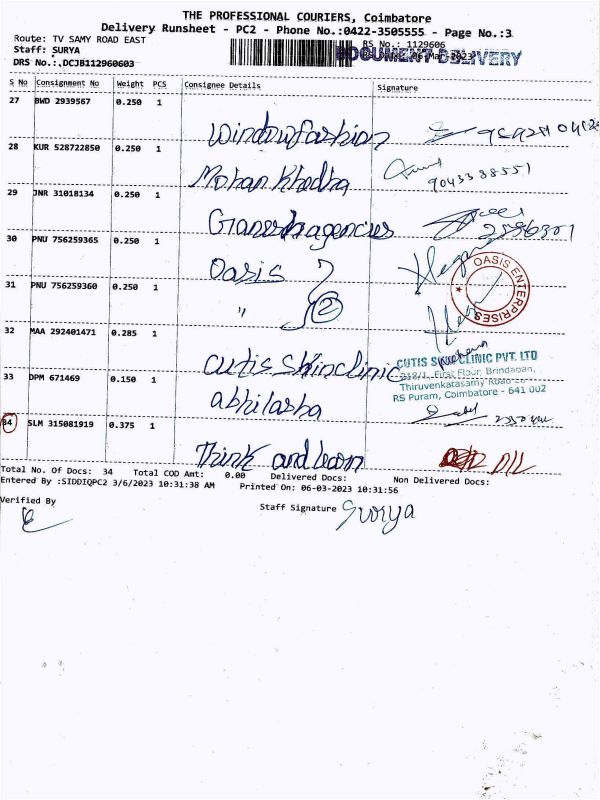 THE PROFESSIONAL COURIERS, Coimbatore
Delivery Runsheet - PC2 - Phone No.:0422-3505555 - Page No.:3
Route: TV SAMY ROAD EAST
RS No.: 1129606
Staff: SURYA
DOCUMENT DELIVERY
DRS No.:.DCJB112960603
S No Consignment No Weight PCS Consignee Details Signature
27 BWD 2939567 0.250 1
Windowfashion
28 KUR 528722850 0.250 1
Mohan Khedha 9043338551
29 JNR 31018134 0.250 1
Ganesh agencies
30 PNU 756259365 0.250 1
Oasis
OASIS ENTERPRISES
31 PNU 756259360 0.250 1
" 2
32 MAA 292401471 0.285 1
cutis skinclinic
CUTIS SKIN CLINIC PVT. LTD
218/1, First Floor, Brindaban,
Thiruvenkatasamy Road
RS Puram, Coimbatore - 641 002
33 DPM 671469 0.150 1
abhilasha
34 SLM 315081919 0.375 1
Think and learn
Total No. Of Docs: 34 Total COD Amt: 0.00 Delivered Docs: Non Delivered Docs:
Entered By :SIDDIQPC2 3/6/2023 10:31:38 AM Printed On: 06-03-2023 10:31:56
Verified By
Staff Signature Surya